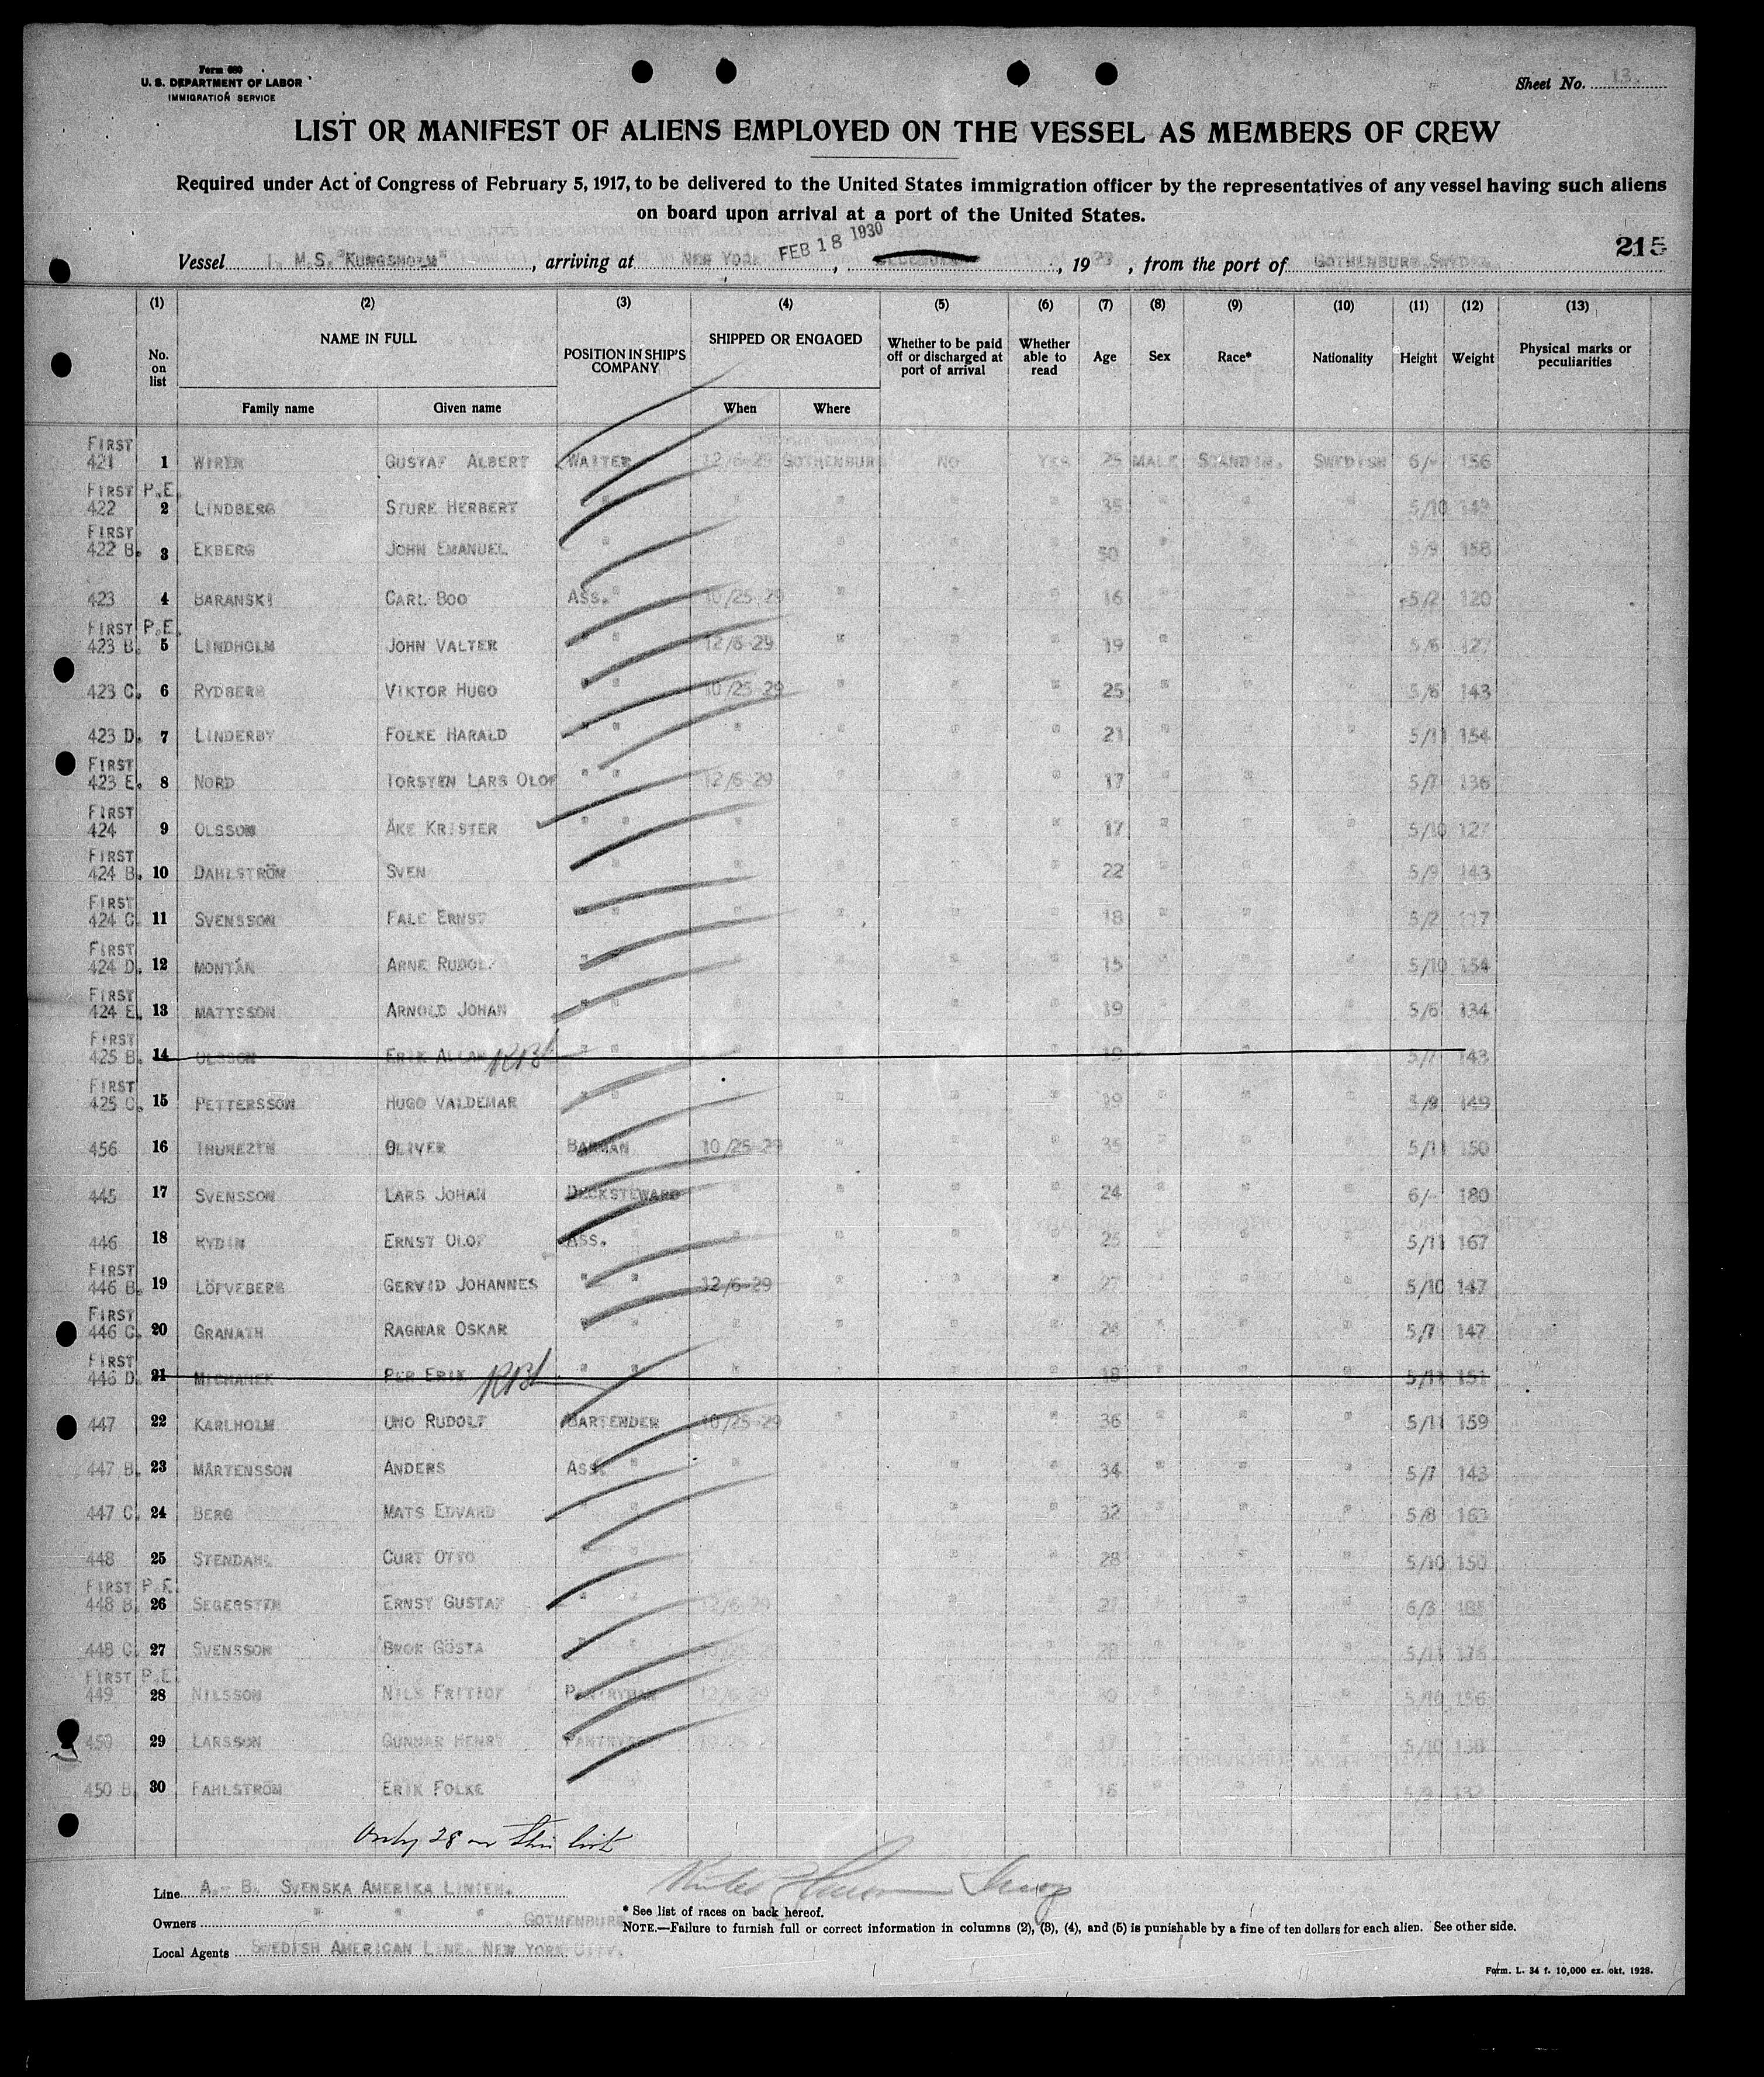 Form 680
U. S. DEPARTMENT OF LABOR
IMMIGRATION SERVICE
Sheet No. 13.
LIST OR MANIFEST OF ALIENS EMPLOYED ON THE VESSEL AS MEMBERS OF CREW
Required under Act of Congress of February 5, 1917, to be delivered to the United States immigration officer by the representatives of any vessel having such aliens
on board upon arrival at a port of the United States.
215
Vessel M.S. "KUNGSHOLM", arriving at NEW YORK FEB 18 1930, 19 29, from the port of GOTHENBURG, SWEDEN
(1) (2) (3) (4) (5) (6) (7) (8) (9) (10) (11) (12) (13)
No. on list NAME IN FULL POSITION IN SHIP'S COMPANY SHIPPED OR ENGAGED Whether to be paid off or discharged at port of arrival Whether able to read Age Sex Race* Nationality Height Weight Physical marks or peculiarities
Family name Given name When Where
FIRST
421 1 WIREN GUSTAF ALBERT WAITER 12/6-29 GOTHENBURG NO YES 25 MALE SCANDIN. SWEDISH 6/- 156
FIRST P.E.
422 2 LINDBERG STURE HERBERT " " " " " 35 " " " 5/10 143
FIRST
422 B. 3 EKBERG JOHN EMANUEL " " " " " 50 " " " 5/9 158
423 4 BARANSKI CARL BOO ASS. " 10/25-29 " " " 16 " " " 5/2 120
FIRST P.E.
423 B. 5 LINDHOLM JOHN VALTER " " 12/6-29 " " " 19 " " " 5/6 127
423 C. 6 RYDBERG VIKTOR HUGO " " 10/25-29 " " " 25 " " " 5/6 143
423 D. 7 LINDERBY FOLKE HARALD " " " " " " 21 " " " 5/11 154
FIRST
423 E. 8 NORD TORSTEN LARS OLOF " " 12/6-29 " " " 17 " " " 5/7 136
FIRST
424 9 OLSSON ÅKE KRISTER " " " " " " 17 " " " 5/10 127
FIRST
424 B. 10 DAHLSTRÖM SVEN " " " " " " 22 " " " 5/9 143
FIRST
424 C. 11 SVENSSON FALE ERNST " " " " " " 18 " " " 5/2 117
FIRST
424 D. 12 MONTÁN ARNE RUDOLF " " " " " " 15 " " " 5/10 154
FIRST
424 E. 13 MATTSSON ARNOLD JOHAN " " " " " " 19 " " " 5/6 134
FIRST
425 B. 14 OLSSON ERIK ALLAN " " " " " " 19 " " " 5/7 143
FIRST
425 C. 15 PETTERSSON HUGO VALDEMAR " " " " " " 19 " " " 5/9 149
456 16 OLIVER BARMAN 10/25-29 " " " 35 " " " 5/11 150
445 17 SVENSSON LARS JOHAN DECKSTEWARD " " " " 24 " " " 6/- 180
446 18 RYDIN ERNST OLOF ASS. " " " " 25 " " " 5/11 167
FIRST
446 B. 19 LÖFVEBERG GERVID JOHANNES " " 12/6-29 " " " 27 " " " 5/10 147
FIRST
446 C. 20 GRANATH RAGNAR OSKAR " " " " " " 24 " " " 5/7 147
FIRST
446 D. 21 MICHANEK PER ERIK " " " " " " 18 " " " 5/11 151
447 22 KARLHOLM UNO RUDOLF BARTENDER 10/25-29 " " " 36 " " " 5/11 159
447 B. 23 MÅRTENSSON ANDERS ASS. " " " " " 34 " " " 5/7 143
447 C. 24 BERG MATS EDVARD " " " " " " 32 " " " 5/8 163
448 25 STENDAHL CURT OTTO " " " " " " 28 " " " 5/10 150
FIRST P.E.
448 B. 26 SEGERSTEN ERNST GUSTAF " " 12/6-29 " " " 27 " " " 6/3 185
448 C. 27 SVENSSON BROR GÖSTA " " 10/25-29 " " " 28 " " " 5/11 176
FIRST P.E.
449 28 NILSSON NILS FRITIOF PANTRYMAN 12/6-29 " " " " " " 5/10 156
450 29 LARSSON GUNNAR HENRY 10/25-29 " " " 17 " " " 5/10 138
450 B. 30 FAHLSTRÖM ERIK FOLKE " 16 " " " 5/9 132
Only 28 on this list
Line A.-B. SVENSKA AMERIKA LINIEN.
Owners " " " GOTHENBURG
Local Agents SWEDISH AMERICAN LINE, NEW YORK CITY.
* See list of races on back hereof.
NOTE.—Failure to furnish full or correct information in columns (2), (3), (4), and (5) is punishable by a fine of ten dollars for each alien. See other side.
Form. L. 34 f. 10,000 ex. okt. 1928.